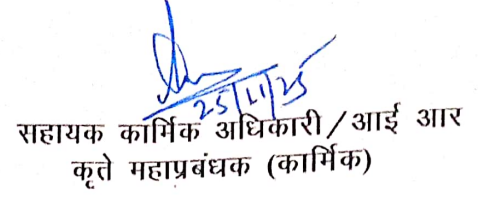 25/11/25
सहायक कार्मिक अधिकारी/आई आर
कृते महाप्रबंधक (कार्मिक)